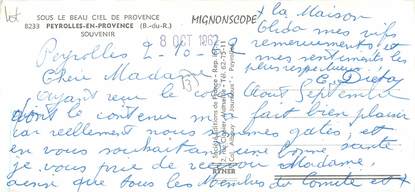 SOUS LE BEAU CIEL DE PROVENCE
8233 PEYROLLES-EN-PROVENCE (B.-du-R.)
SOUVENIR
MIGNONSCOPE
8 OCT 1962
Peyrolles 2-10-62
Chère Madame
Ayant reçu le colis Août Septembre
dont le contenu m'a fait bien plaisir
car réellement nous sommes gatés, et
en vous souhaitant une bonne santé
je vous prie de recevoir Madame,
ainsi que tous les Membres du Comité et
+ la Maison
mes vifs
remerciements, et
mes sentiments les
plus respectueux
RYNER